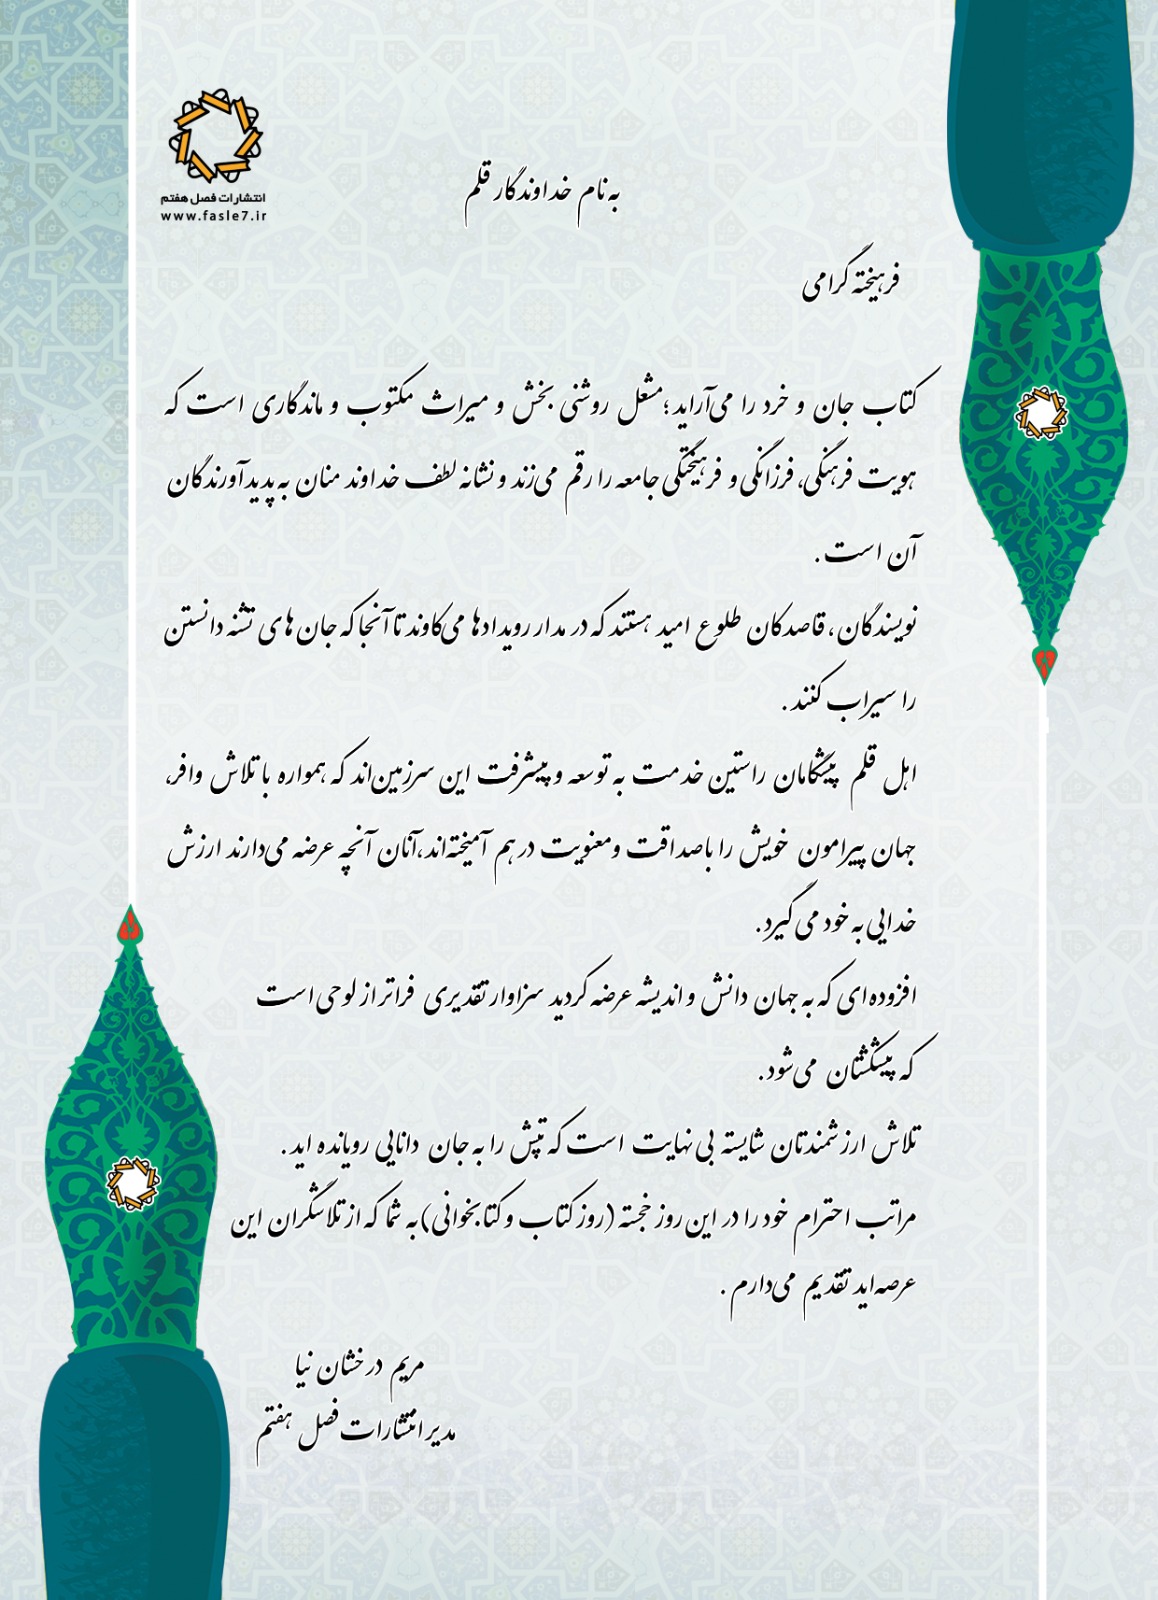 انتشارات فصل هفتم
www.fasle7.ir
به نام خداوندگار قلم
فرهیخته گرامی
کتاب جان و خرد را می‌آراید؛مشعل روشنی بخش و میراث مکتوب و ماندگاری است که
هویت فرهنگی، فرزانگی و فرهیختگی جامعه را رقم می‌زند و نشانه لطف خداوند منان به پدیدآورندگان
آن است.
نویسندگان، قاصدکان طلوع امید هستند که در مدار رویدادها می‌کاوند تا آنجا که جان های تشنه دانستن
را سیراب کنند.
اهل قلم پیشگامان راستین خدمت به توسعه و پیشرفت این سرزمین‌اند که همواره با تلاش وافر،
جهان پیرامون خویش را باصداقت ومعنویت در هم آمیخته‌اند،آنان آنچه عرضه می‌دارند ارزش
خدایی به خود می گیرد.
افزوده‌ای که به جهان دانش و اندیشه عرضه کردید سزاوار تقدیری فراتر از لوحی است
که پیشکشتان می‌شود.
تلاش ارزشمندتان شایسته بی نهایت است که تپش را به جان دانایی رویانده اید.
مراتب احترام خود را در این روز خجسته (روز کتاب و کتابخوانی)به شما که از تلاشگران این
عرصه‌اید تقدیم می‌دارم.
مریم درخشان نیا
مدیر انتشارات فصل هفتم